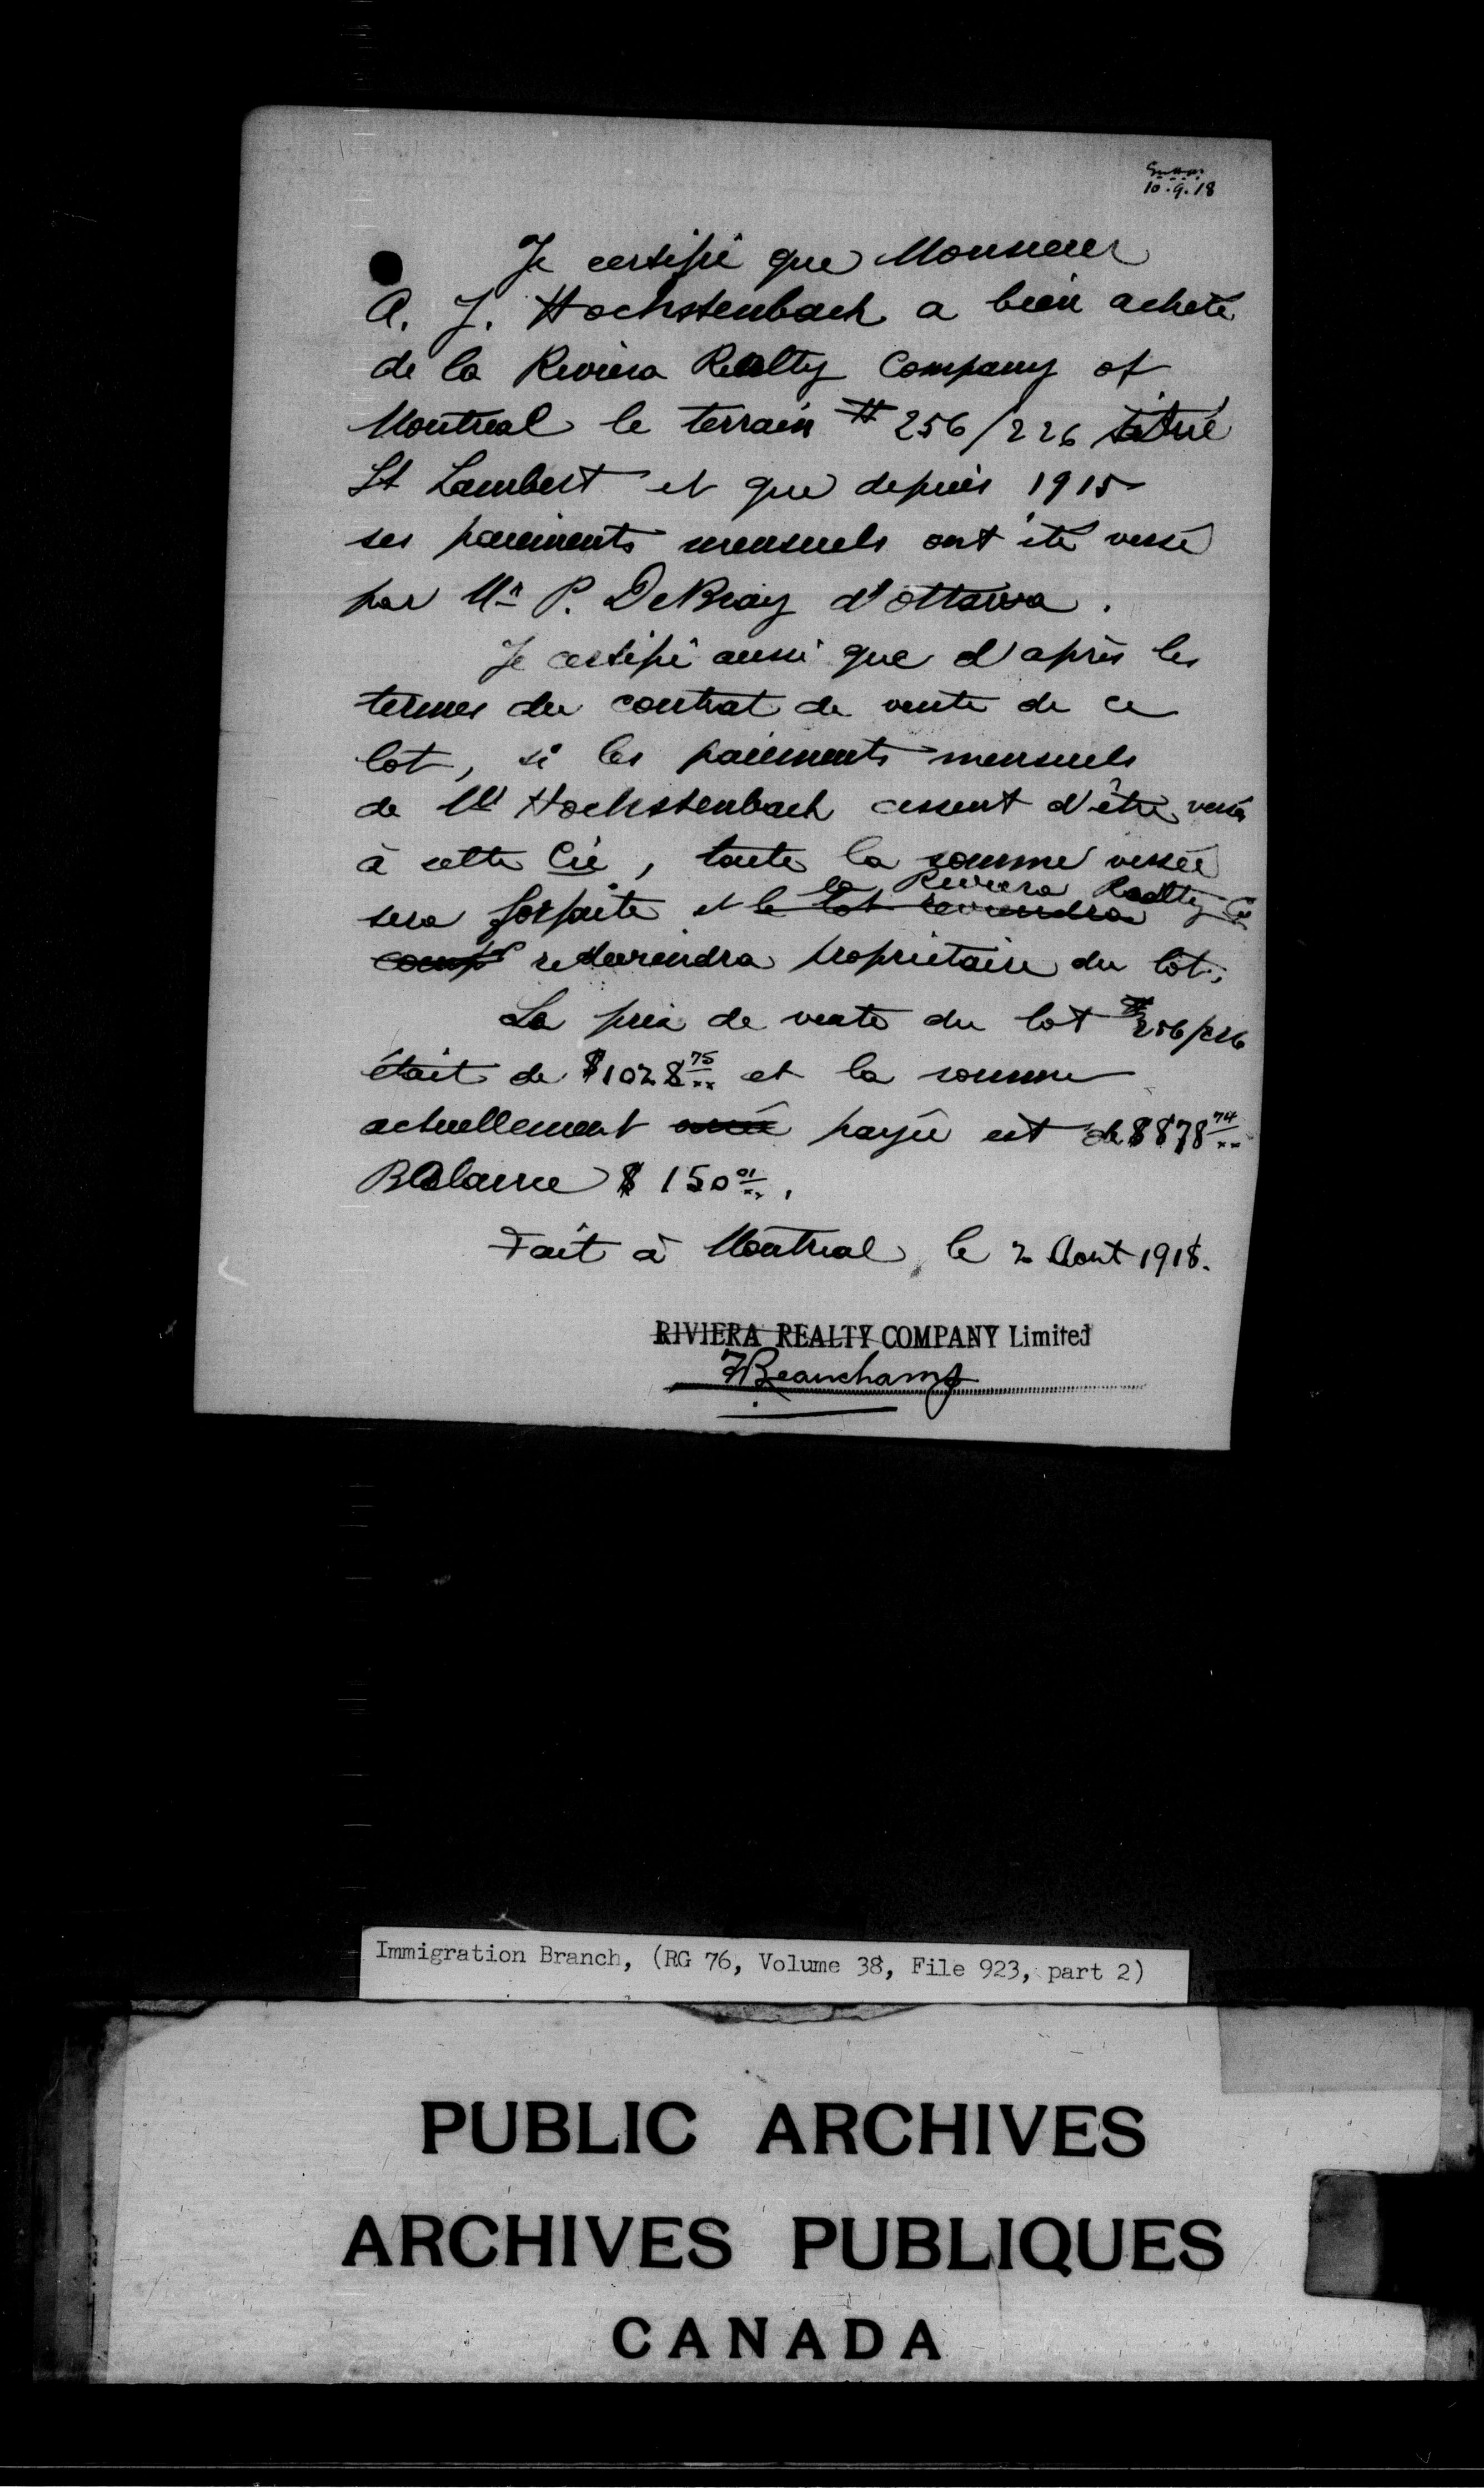 10.9.18
Je certifie que Monsieur
A. J. Hochstenbach a bien acheté
de la Riviera Realty Company of
Montreal le terrain # 256/226 situé
St Lambert et que depuis 1915
ses paiements mensuels ont été versé
par Mr P. DeBray d'Ottawa.
Je certifie aussi que d'après les
termes du contrat de vente de ce
lot, si les paiements mensuels
de Mr Hochstenbach cessent d'être versés
à cette Cie, toute la somme versée
la Riviera Realty Cie
sera forfaite et le lot reviendra
comp redeviendra propriétaire du lot.
Le prix de vente du lot # 256/226
était de $1028 75/xx et la somme
actuellement payée est de $878 74/xx
Balance $ 150 01/xx.
Fait à Montreal, le 2 Aout 1918.
RIVIERA REALTY COMPANY Limited
FBeauchamp
Immigration Branch, (RG 76, Volume 38, File 923, part 2)
PUBLIC ARCHIVES
ARCHIVES PUBLIQUES
CANADA